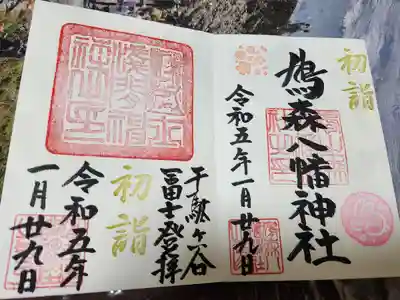 初詣
鳩森八幡神社
令和五年一月廿九日
千駄ヶ谷
冨士登拝
初詣
令和五年
一月廿九日